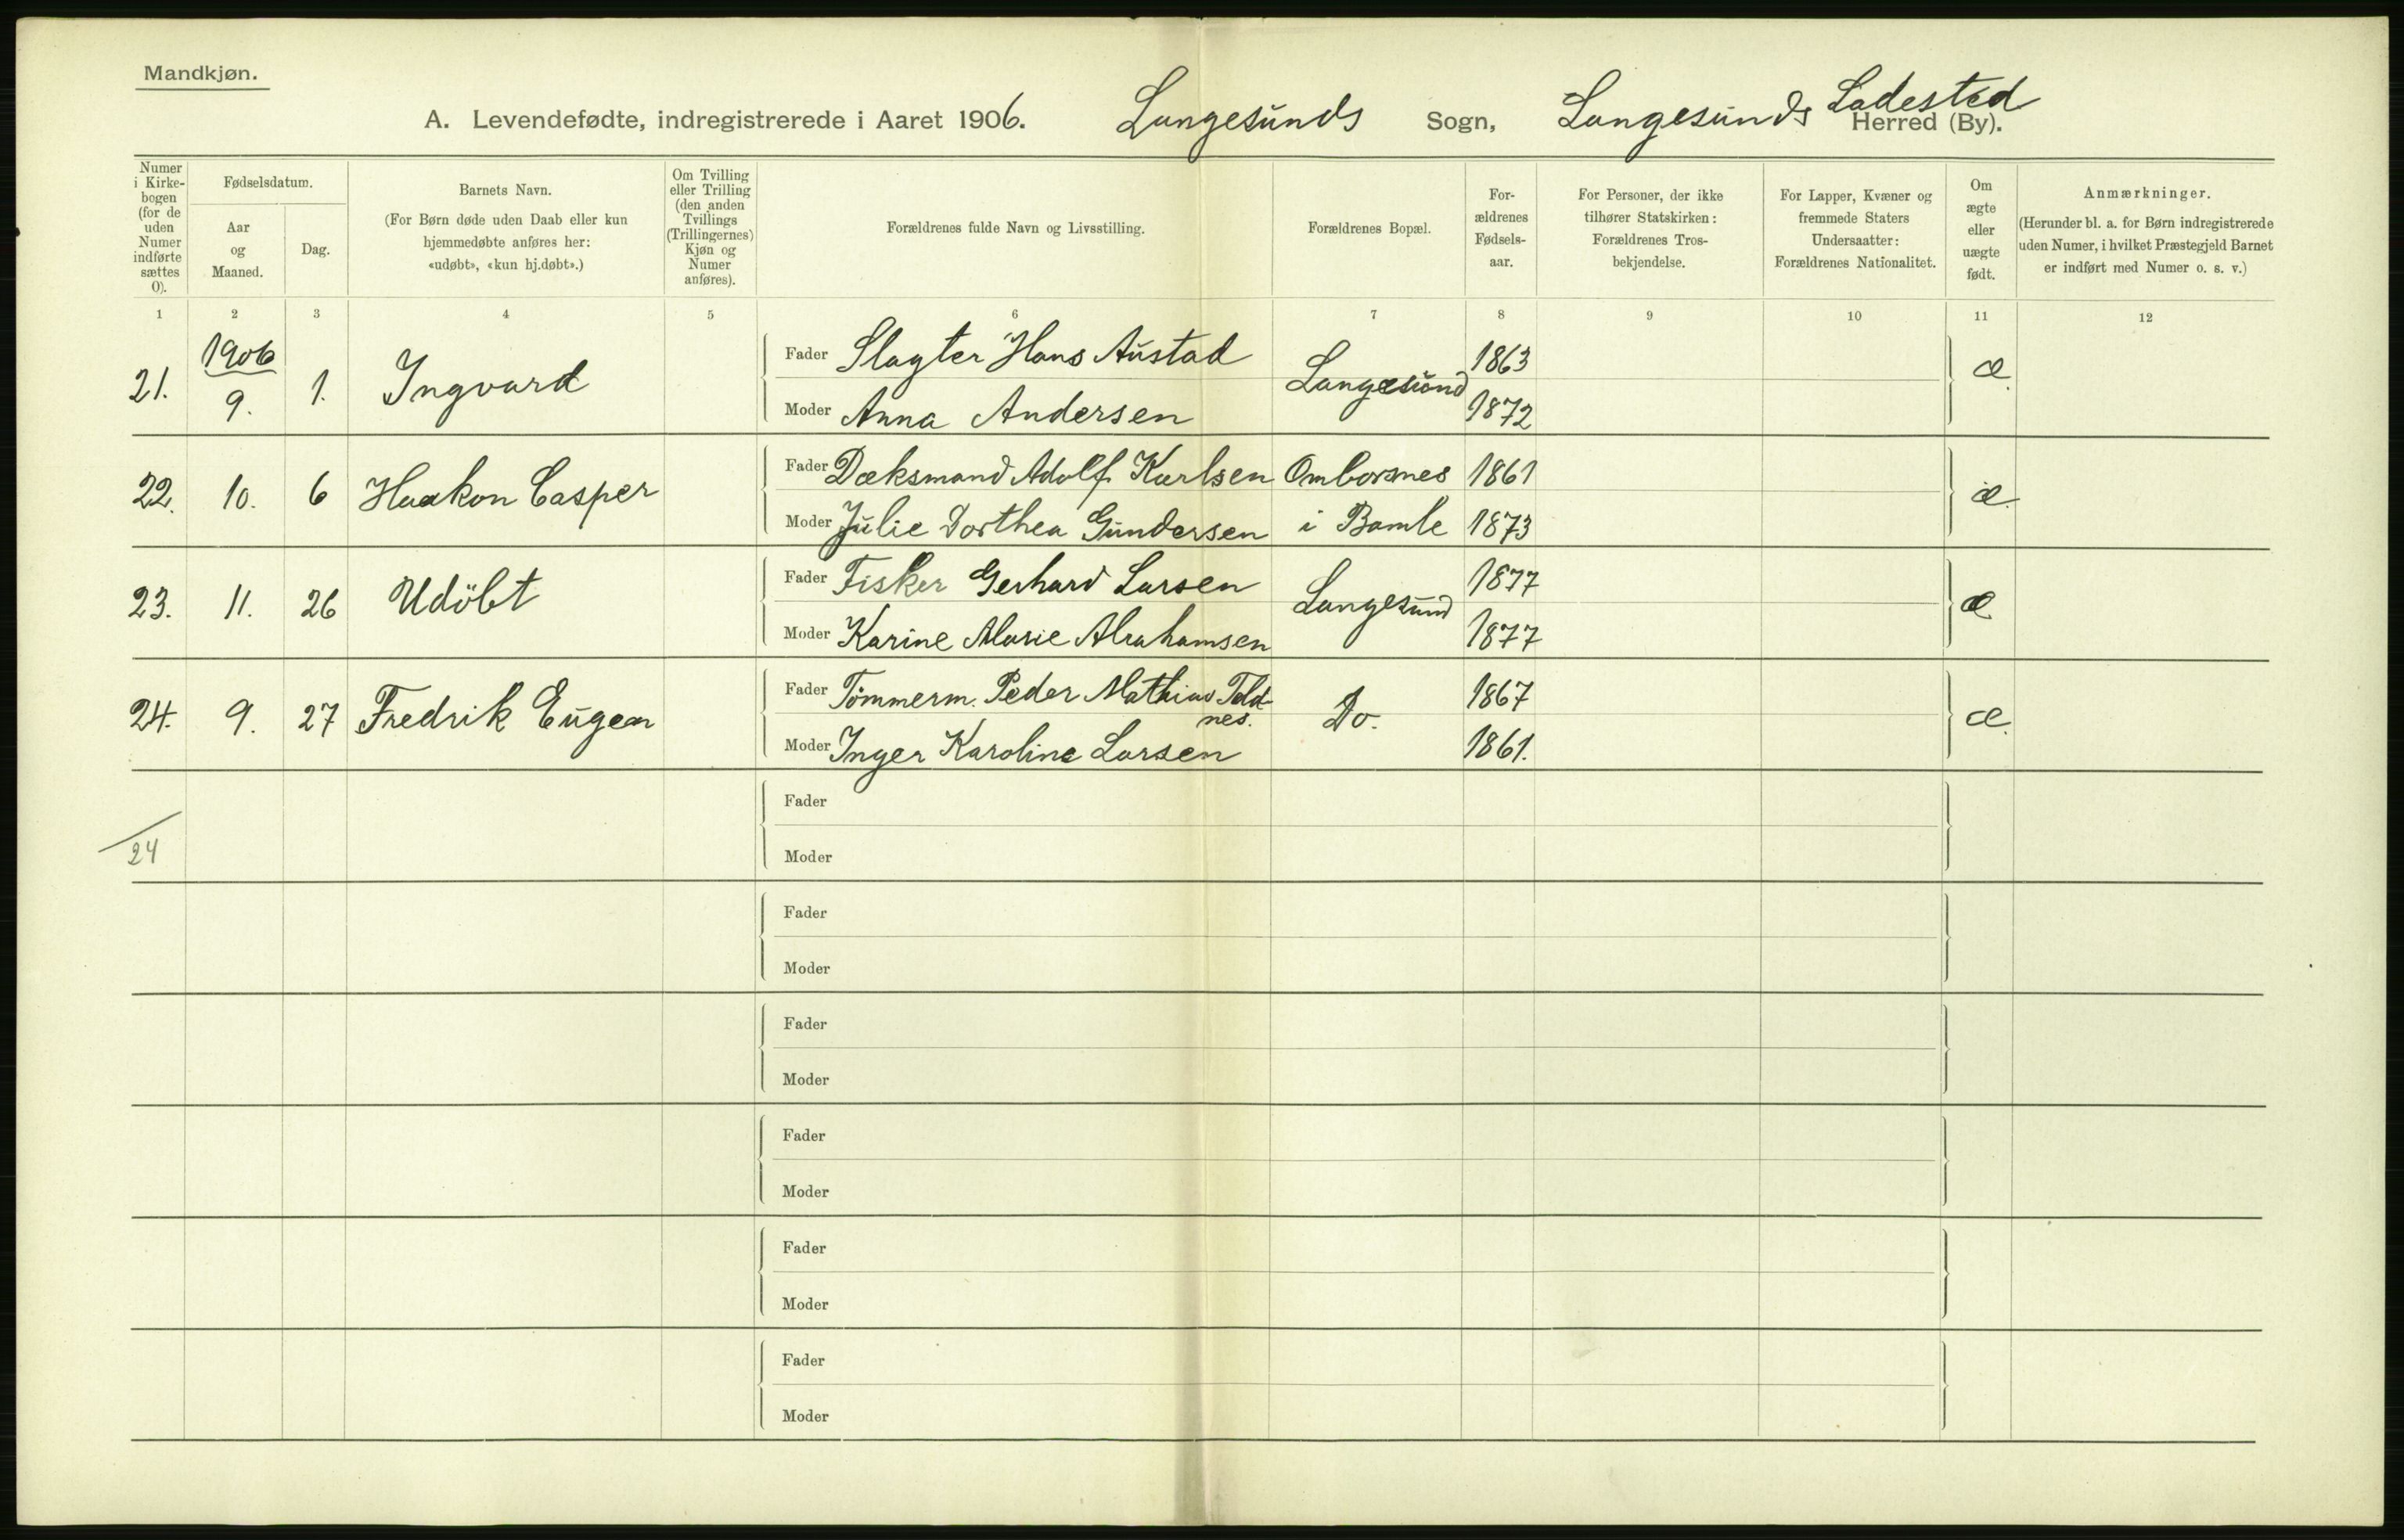 Mandkjøn.
A. Levendefødte, indregistrerede i Aaret 1906. Langesunds Sogn, Langesunds Ladested Herred (By).
Numer i Kirke-bogen (for de uden Numer indførte sættes 0).
Fødselsdatum.
Aar og Maaned.
Dag.
Barnets Navn.
(For Børn døde uden Daab eller kun
hjemmedøbte anføres her:
«udøbt», «kun hj.døbt».)
Om Tvilling
eller Trilling
(den anden
Tvillings
(Trillingernes)
Kjøn og
Numer
anføres).
Forældrenes fulde Navn og Livsstilling.
Forældrenes Bopæl.
For-
ældrenes
Fødsels-
aar.
For Personer, der ikke
tilhører Statskirken:
Forældrenes Tros-
bekjendelse.
For Lapper, Kvæner og
fremmede Staters
Undersaatter:
Forældrenes Nationalitet.
Om
ægte
eller
uægte
født.
Anmærkninger.
(Herunder bl. a. for Børn indregistrerede
uden Numer, i hvilket Præstegjeld Barnet
er indført med Numer o. s. v.)
1 2 3 4 5 6 7 8 9 10 11 12
1906
21. 9. 1. Ingvard Fader Slagter Hans Austad Langesund 1863 æ.
Moder Anna Andersen 1872
22. 10. 6 Haakon Casper Fader Dæksmand Adolf Karlsen Omborsnes 1861 æ.
Moder Julie Dorthea Gundersen i Bamle 1873
23. 11. 26 Udöbt Fader Fisker Gerhard Larsen Langesund 1877 æ
Moder Karine Marie Abrahamsen 1877
24. 9. 27 Fredrik Eugen Fader Tömmerm. Peder Mathias Told- Do. 1867 æ.
nes.
Moder Inger Karoline Larsen 1861.
Fader
24
Moder
Fader
Moder
Fader
Moder
Fader
Moder
Fader
Moder
Fader
Moder